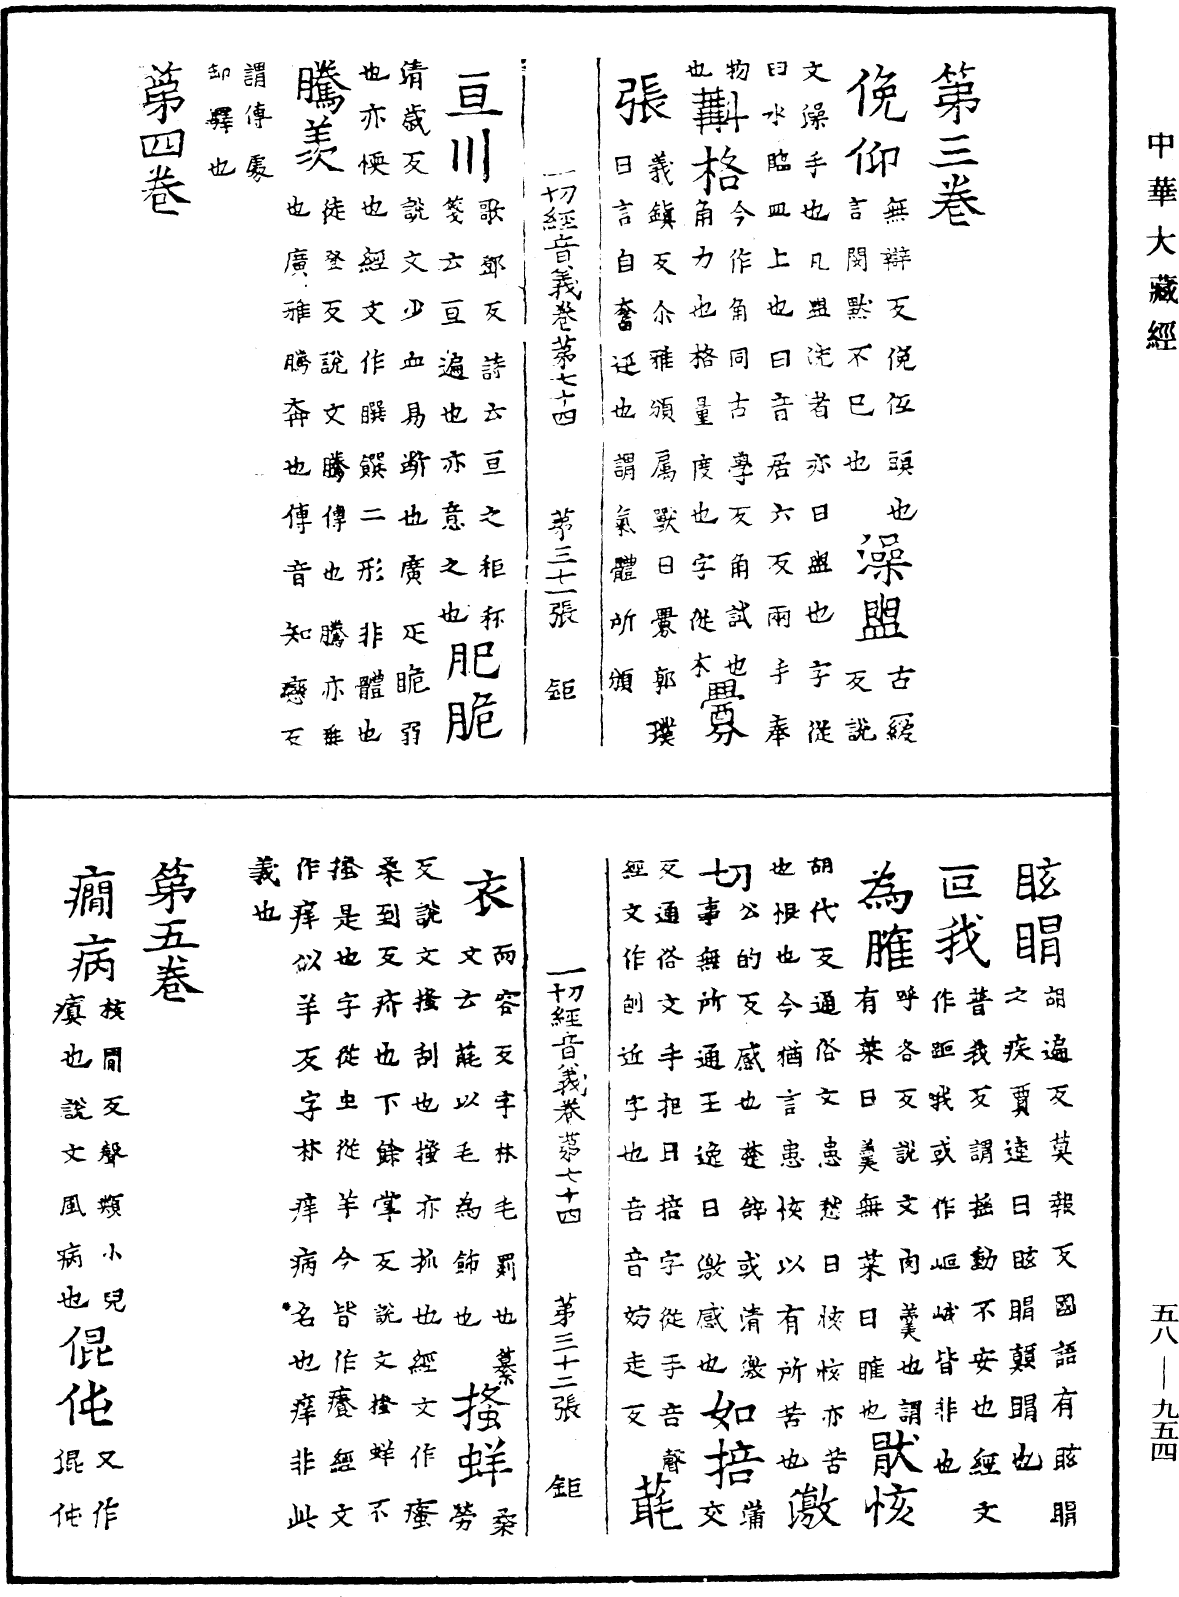 中華大藏經
第三卷
俛仰 無辯反俛伍頭也
言閔默不巳也
澡盥 古緩
反說
文澡手也凡盥洗者亦曰盥也字從
臼水臨皿上也臼音居六反兩手奉
物也
㪺格 今作角同古學反角試也
角力也格量度也字從木
釁
張 義鎮反尒雅頒属獸曰釁郭璞
曰言自奮迋也謂氣體所須
一切經音義卷第七十四 第三十一張 鉅
亘川 歌鄧反詩云亘之秬秠
箋云亘遍也亦意之也
肥脆
清歲反說文少血易斷也廣疋脆弱
也亦愞也經文作䐣饌二形非體也
騰羨 徒登反說文騰傳也騰亦乗
也廣雅騰奔也傳音知戀反
謂傳處
却驛也
第四卷
眩瞑 胡遍反莫報反國語有眩瞑
之疾賈逵曰眩瞑顛瞑也
叵我 普我反謂摇動不安也經文
作距哦或作岠峨皆非也
為臛 呼各反說文肉羹也謂
有菜曰羹無菜曰臛也
猒㤥
胡代反通俗文患愁曰㤥㤥亦苦
也恨也今猶言患㤥以有所苦也
激
切 公的反感也楚辝或清激
事無所通王逸曰激感也
如掊 蒲
交
反通俗文手把曰掊字從手音聲
經文作刨近字也音音妨走反
毦
一切經音義卷第七十四 第三十二張 鉅
衣 而容反字林毛罽也
文云毦以毛為飾也
搔蛘 桑
勞
反說文搔刮也搔亦抓也經文作瘙
桑到反疥也下餘掌反說文搔蛘不
搔是也字從虫從羊今皆作癢經文
作痒似羊反字林痒病名也痒非此
義也
第五卷
癎病 核間反聲類小兒
瘨也說文風病也
倱伅 又作
掍伅
五八—九五四